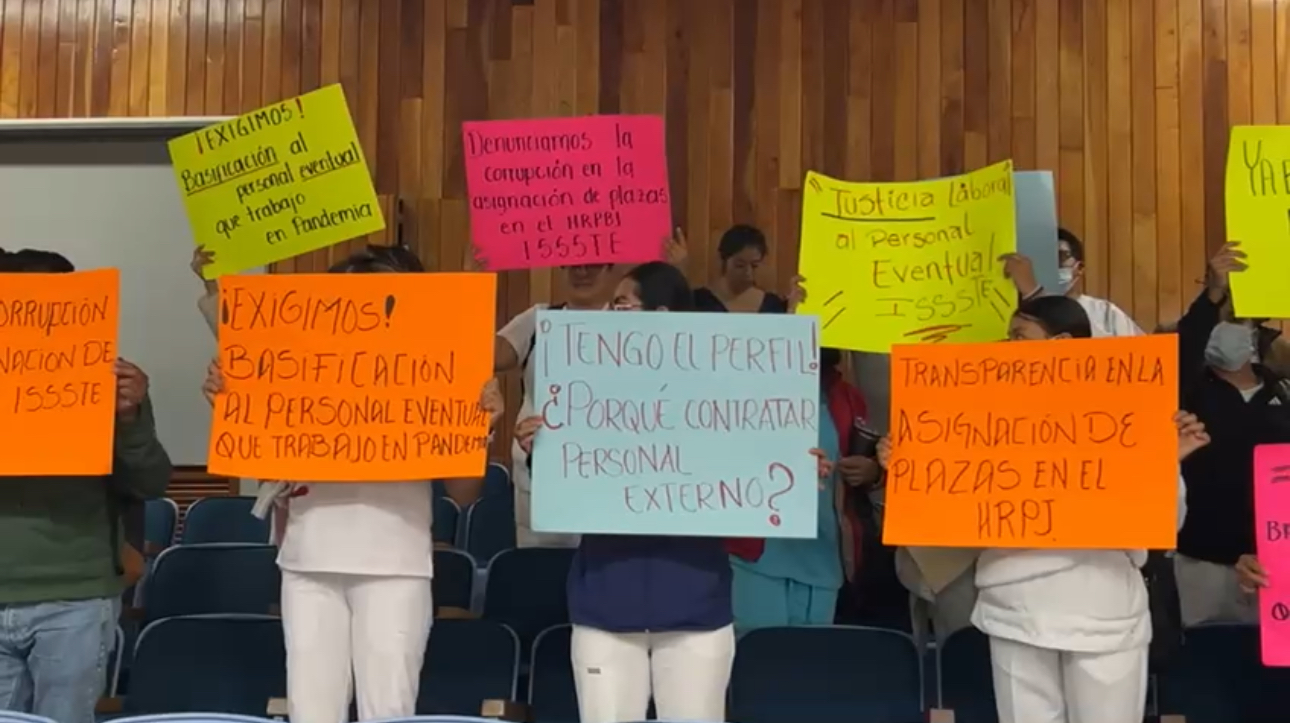 ¡EXIGIMOS!
Basificación al
personal eventual
que trabajo
en Pandemia
Denunciamos la
corrupción en la
asignación de plazas
en el HRPBJ
ISSSTE
"Justicia Laboral
al Personal
Eventual
ISSSTE
YA
ISSSTE
¡EXIGIMOS!
BASIFICACIÓN
AL PERSONAL EVENTUAL
QUE TRABAJO EN PANDEMIA
¡TENGO EL PERFIL!
¿PORQUÉ CONTRATAR
PERSONAL
EXTERNO?
TRANSPARENCIA EN LA
ASIGNACIÓN DE
PLAZAS EN EL
HRPJ